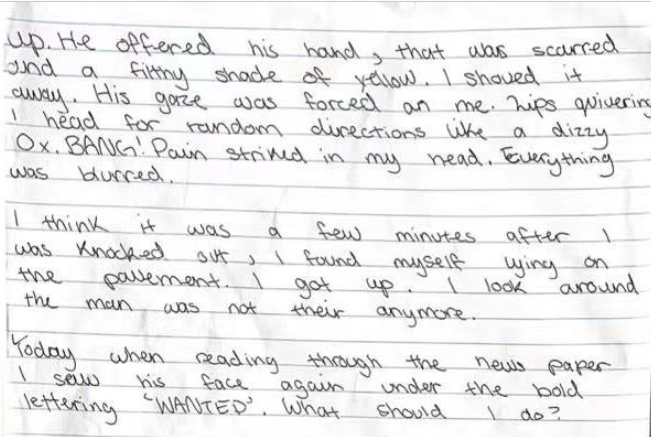 up. He offered his hand, that was scarred
and a filthy shade of yellow. I shoved it
away. His gaze was forced on me. Lips quivering
I head for random directions like a dizzy
Ox. BANG! Pain striked in my head. Everything
was blurred.
I think it was a few minutes after I
was knocked out, I found myself lying on
the pavement. I got up. I look around
the man was not their anymore.
Today when reading through the news paper
I saw his face again under the bold
lettering "WANTED'. What should I do?